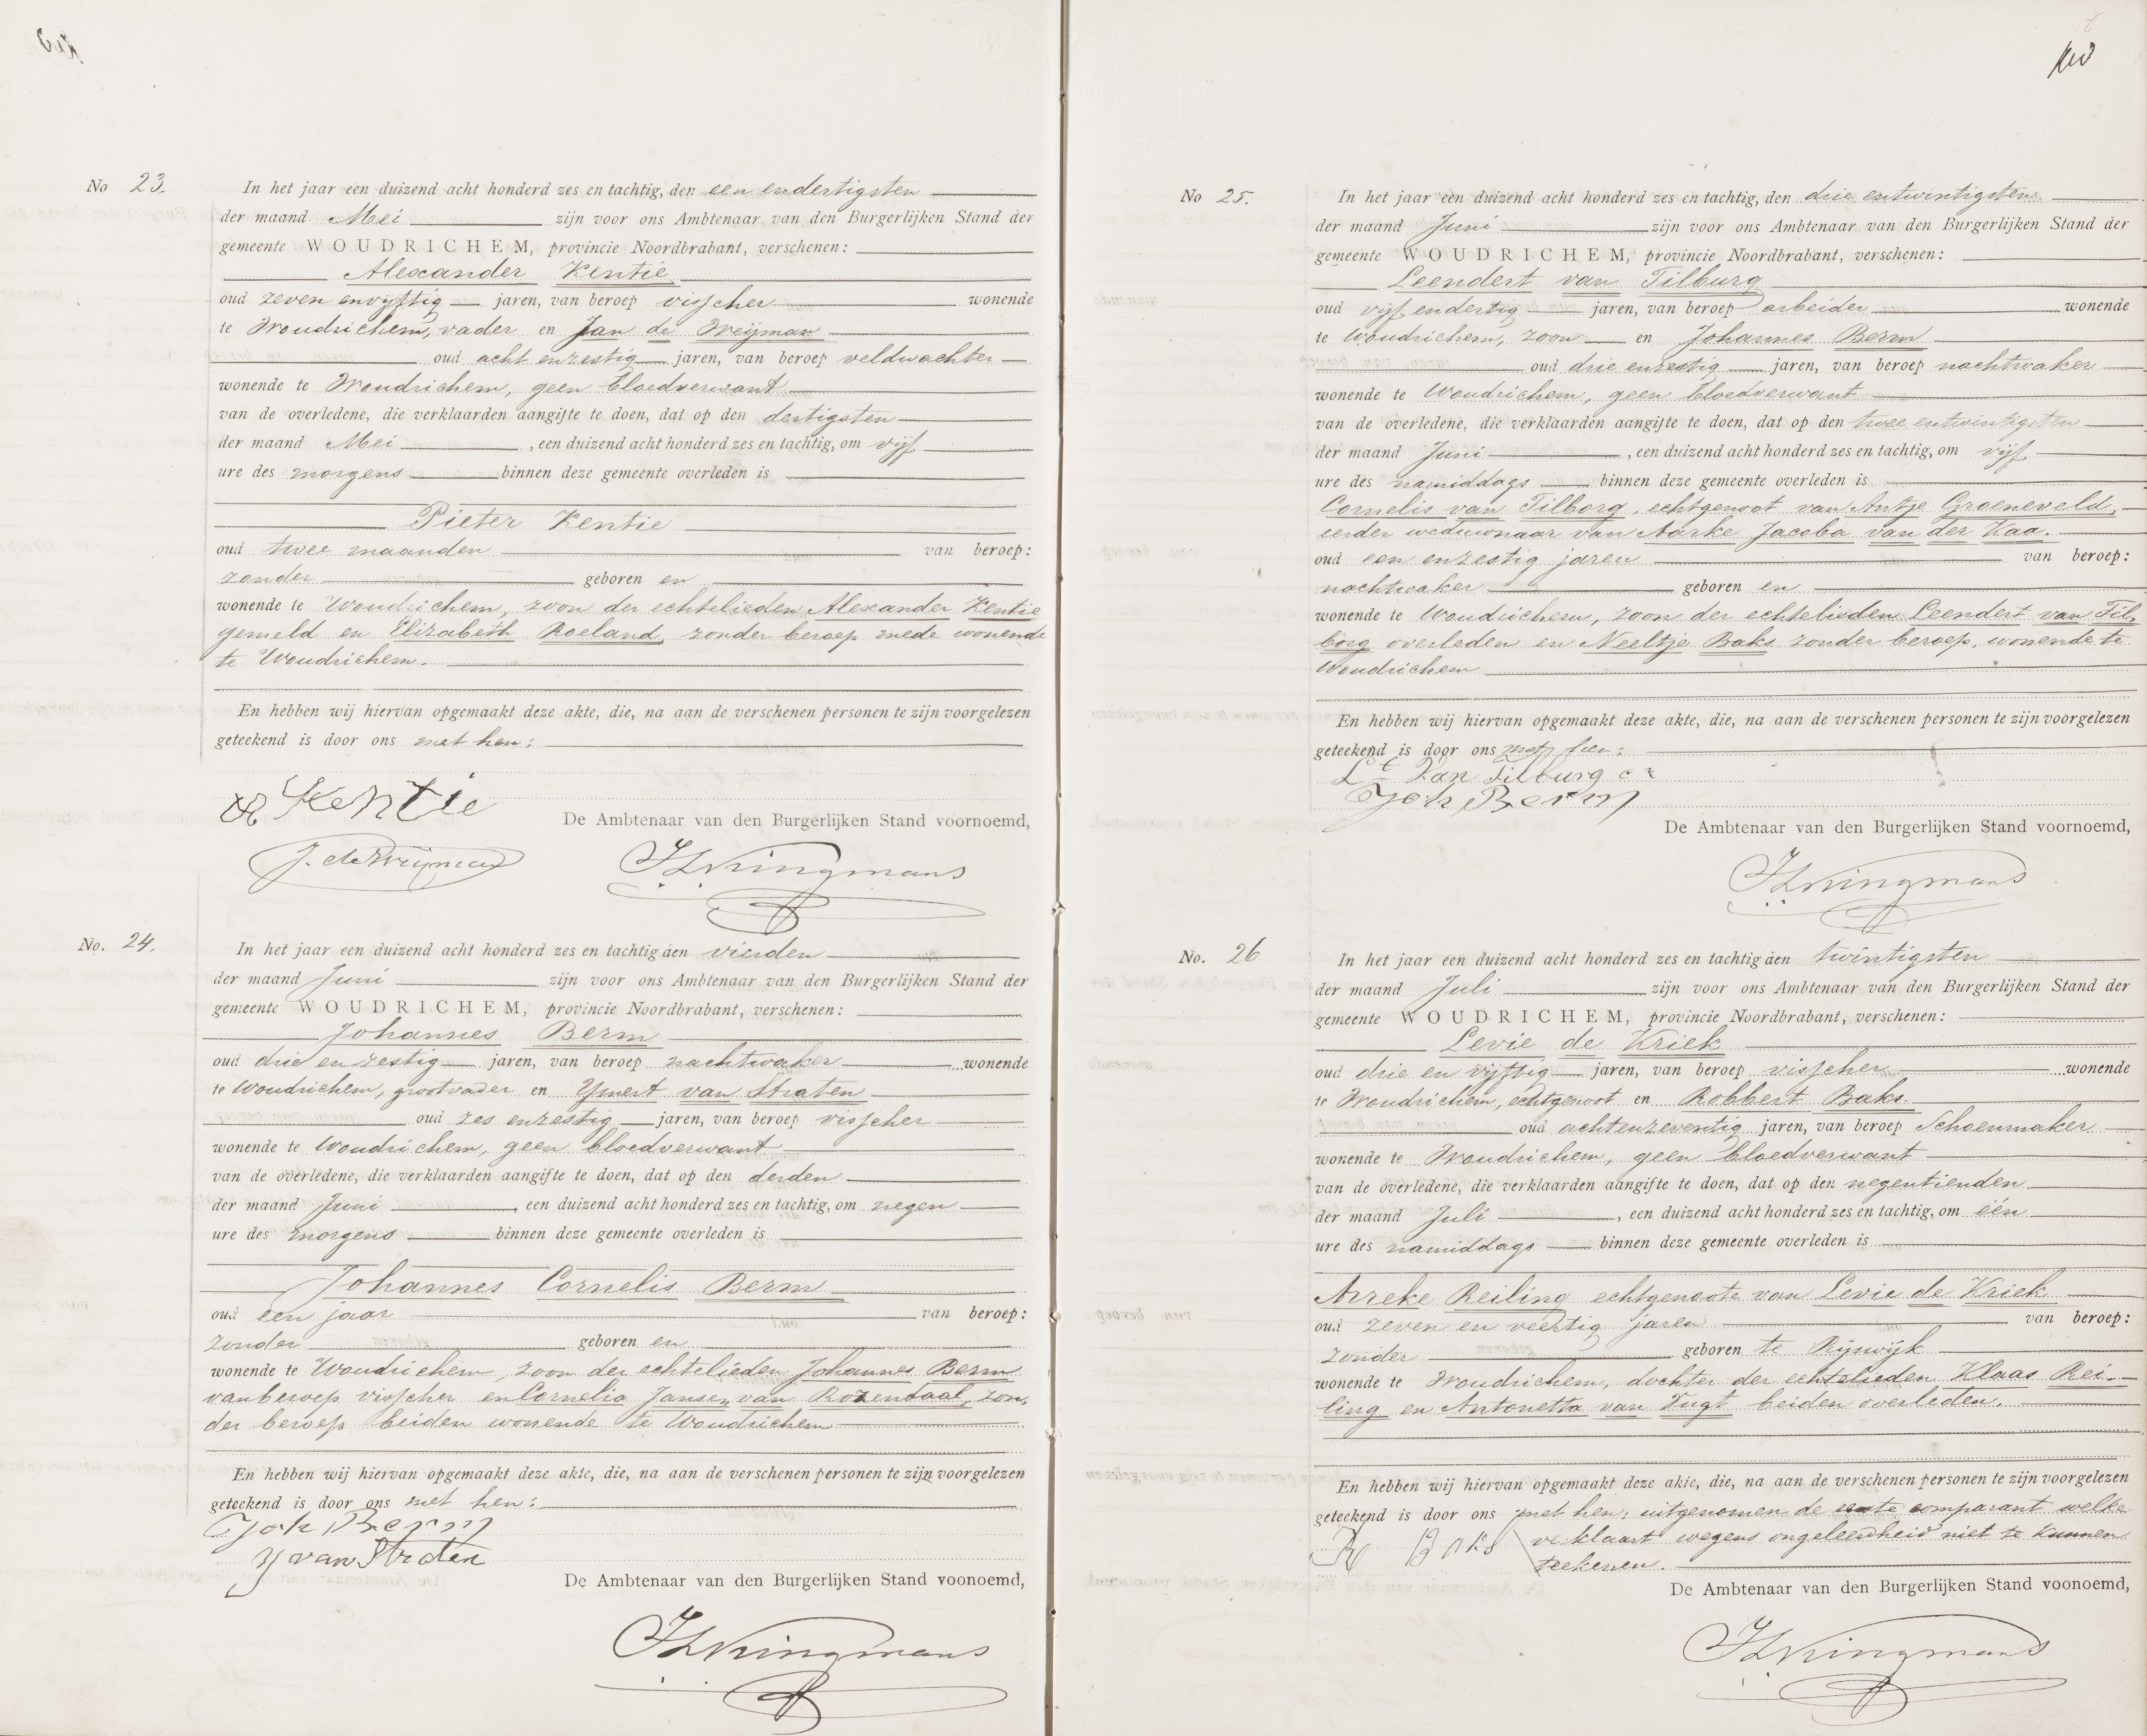 No 23.
In het jaar een duizend acht honderd zes en tachtig, den een endertigsten
der maand Mei zijn voor ons Ambtenaar van den Burgerlijken Stand der
gemeente WOUDRICHEM, provincie Noordbrabant, verschenen:
Alexander Kentie
oud zeven envijftig jaren, van beroep visscher wonende
te Woudrichem, vader en Jan de Weijman
oud acht enzestig jaren, van beroep veldwachter
wonende te Woudrichem, geen bloedverwant
van de overledene, die verklaarden aangifte te doen, dat op den dertigsten
der maand Mei, een duizend acht honderd zes en tachtig, om vijf
ure des morgens binnen deze gemeente overleden is
Pieter Kentie
oud twee maanden van beroep:
zonder geboren en
wonende te Woudrichem, zoon der echtelieden Alexander Kentie
gemeld en Elizabeth Roeland, zonder beroep mede wonende
te Woudrichem.
En hebben wij hiervan opgemaakt deze akte, die, na aan de verschenen personen te zijn voorgelezen
geteekend is door ons met hen:
Kentie
De Ambtenaar van den Burgerlijken Stand voornoemd,
J. de Weijman
Kingmans
No. 24.
In het jaar een duizend acht honderd zes en tachtig den vierden
der maand Juni zijn voor ons Ambtenaar van den Burgerlijken Stand der
gemeente WOUDRICHEM, provincie Noordbrabant, verschenen:
Johannes Berm
oud drie en zestig jaren, van beroep nachtwaker wonende
te Woudrichem, grootvader en Ymert van Straten
oud zes enzestig jaren, van beroep visscher
wonende te Woudrichem, geen bloedverwant
van de overledene, die verklaarden aangifte te doen, dat op den derden
der maand Juni, een duizend acht honderd zes en tachtig, om negen
ure des morgens binnen deze gemeente overleden is
Johannes Cornelis Berm
oud een jaar van beroep:
zonder geboren en
wonende te Woudrichem, zoon der echtelieden Johannes Berm
van beroep visscher en Cornelia Jansen van Rozendaal, zon,
der beroep beiden wonende te Woudrichem
En hebben wij hiervan opgemaakt deze akte, die, na aan de verschenen personen te zijn voorgelezen
geteekend is door ons met hen:
Joh Berm
Y van Straten
De Ambtenaar van den Burgerlijken Stand voonoemd,
Kingmans
No 25.
In het jaar een duizend acht honderd zes en tachtig, den drie entwintigsten
der maand Juni zijn voor ons Ambtenaar van den Burgerlijken Stand der
gemeente WOUDRICHEM, provincie Noordbrabant, verschenen:
Leendert van Tilburg
oud vijf endertig jaren, van beroep arbeider wonende
te Woudrichem, zoon en Johannes Berm
oud drie enzestig jaren, van beroep nachtwaker
wonende te Woudrichem, geen bloedverwant
van de overledene, die verklaarden aangifte te doen, dat op den twee entwintigsten
der maand Juni, een duizend acht honderd zes en tachtig, om vijf
ure des namiddags binnen deze gemeente overleden is
Cornelis van Tilborg, echtgenoot van Antje Groeneveld,
eerder weduwnaar van Aarke Jacoba van der Kaa.
oud een enzestig jaren van beroep:
nachtwaker geboren en
wonende te Woudrichem, zoon der echtelieden Leendert van Til,
borg overleden en Neeltje Baks zonder beroep, wonende te
Woudrichem
En hebben wij hiervan opgemaakt deze akte, die, na aan de verschenen personen te zijn voorgelezen
geteekend is door ons met hen:
Lt Van Tilburg
Joh Berm
De Ambtenaar van den Burgerlijken Stand voornoemd,
Kingmans
No. 26
In het jaar een duizend acht honderd zes en tachtig den twintigsten
der maand Juli zijn voor ons Ambtenaar van den Burgerlijken Stand der
gemeente WOUDRICHEM, provincie Noordbrabant, verschenen:
Levie de Kriek
oud drie en vijftig jaren, van beroep visscher wonende
te Woudrichem, echtgenoot en Robbert Baks
oud achtenzeventig jaren, van beroep Schoenmaker
wonende te Woudrichem, geen bloedverwant
van de overledene, die verklaarden aangifte te doen, dat op den negentienden
der maand Juli, een duizend acht honderd zes en tachtig, om één
ure des namiddags binnen deze gemeente overleden is
Arreke Reiling echtgenoote van Levie de Kriek
oud zeven en veertig jaren van beroep:
zonder geboren te Rijswijk
wonende te Woudrichem, dochter der echtelieden Klaas Rei-
ling en Antonetta van Vugt beiden overleden.
En hebben wij hiervan opgemaakt deze akte, die, na aan de verschenen personen te zijn voorgelezen
geteekend is door ons met hen, uitgenomen de eerste comparant welke
R Baks verklaart wegens ongeleerdheid niet te kunnen
teekenen.
De Ambtenaar van den Burgerlijken Stand voonoemd,
Kingmans